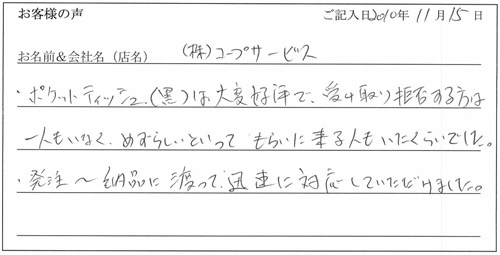 お客様の声 ご記入日2010年 11月 15日
お名前&会社名(店名) (株)コープサービス
・ポケットティッシュ(黒)は大変好評で、受け取り拒否する方は
一人もいなく、めずらしいといって もらいに来る人もいたくらいでした。
・発注〜納品に渡って、迅速に対応していただけました。